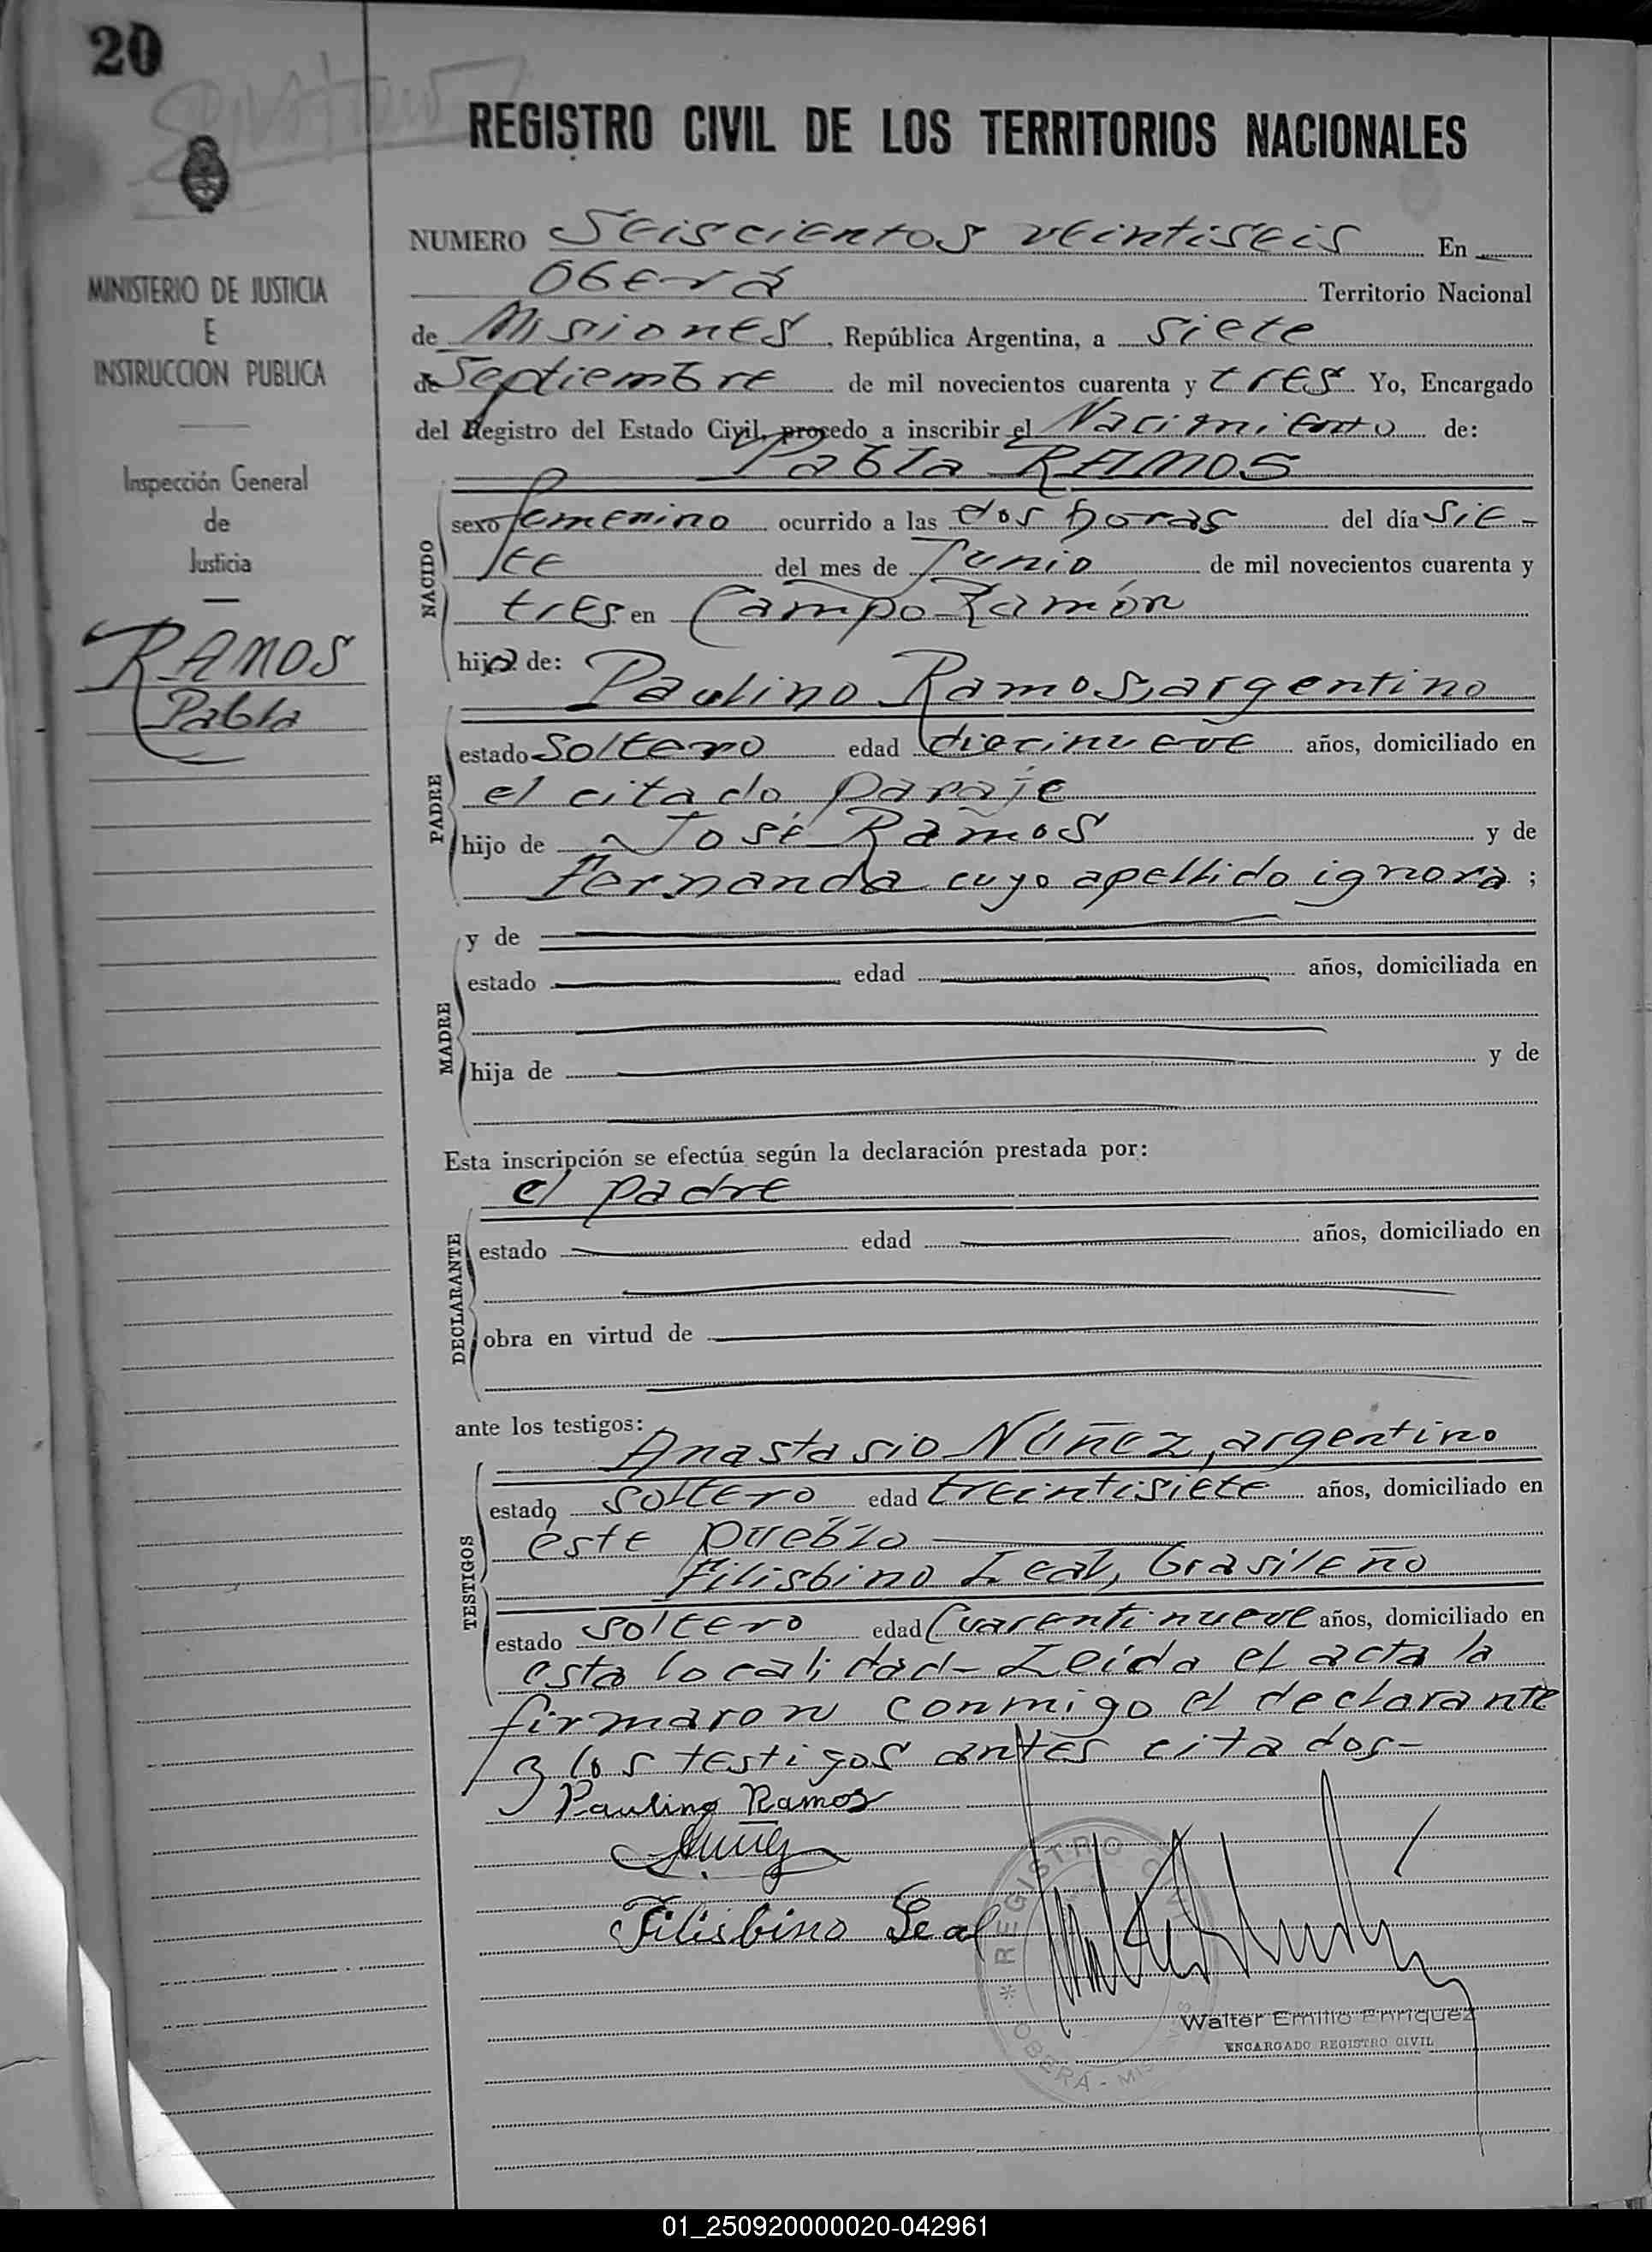 20
REGISTRO CIVIL DE LOS TERRITORIOS NACIONALES
MINISTERIO DE JUSTICIA
E
INSTRUCCION PUBLICA
Inspección General
de
Justicia
RAMOS
Pabla
NUMERO Seiscientos veintiseis En
Oberá Territorio Nacional
de Misiones, República Argentina, a siete
de Septiembre de mil novecientos cuarenta y tres Yo, Encargado
del Registro del Estado Civil, procedo a inscribir el Nacimiento de:
Pabla RAMOS
NACIDO
sexo femenino ocurrido a las dos horas del día sie-
te del mes de Junio de mil novecientos cuarenta y
tres en Campo Ramón
hija de:
Paulino Ramos, argentino
PADRE
estado soltero edad diecinueve años, domiciliado en
el citado paraje
hijo de José Ramos y de
Fernanda cuyo apellido ignora;
MADRE
y de
estado edad años, domiciliada en
hija de y de
Esta inscripción se efectúa según la declaración prestada por:
el padre
DECLARANTE
estado edad años, domiciliado en
obra en virtud de
ante los testigos:
Anastasio Núñez, argentino
TESTIGOS
estado soltero edad treintisiete años, domiciliado en
éste pueblo
Filisbino Leal, brasileño
estado soltero edad cuarentinueve años, domiciliado en
esta localidad - Leída el acta la
firmaron conmigo el declarante
y los testigos antes citados-
Paulino Ramos
Núñez
Filisbino Leal
REGISTRO CIVIL
OBERÁ - MISIONES
Walter Emilio Enriquez
ENCARGADO REGISTRO CIVIL
01_250920000020-042961